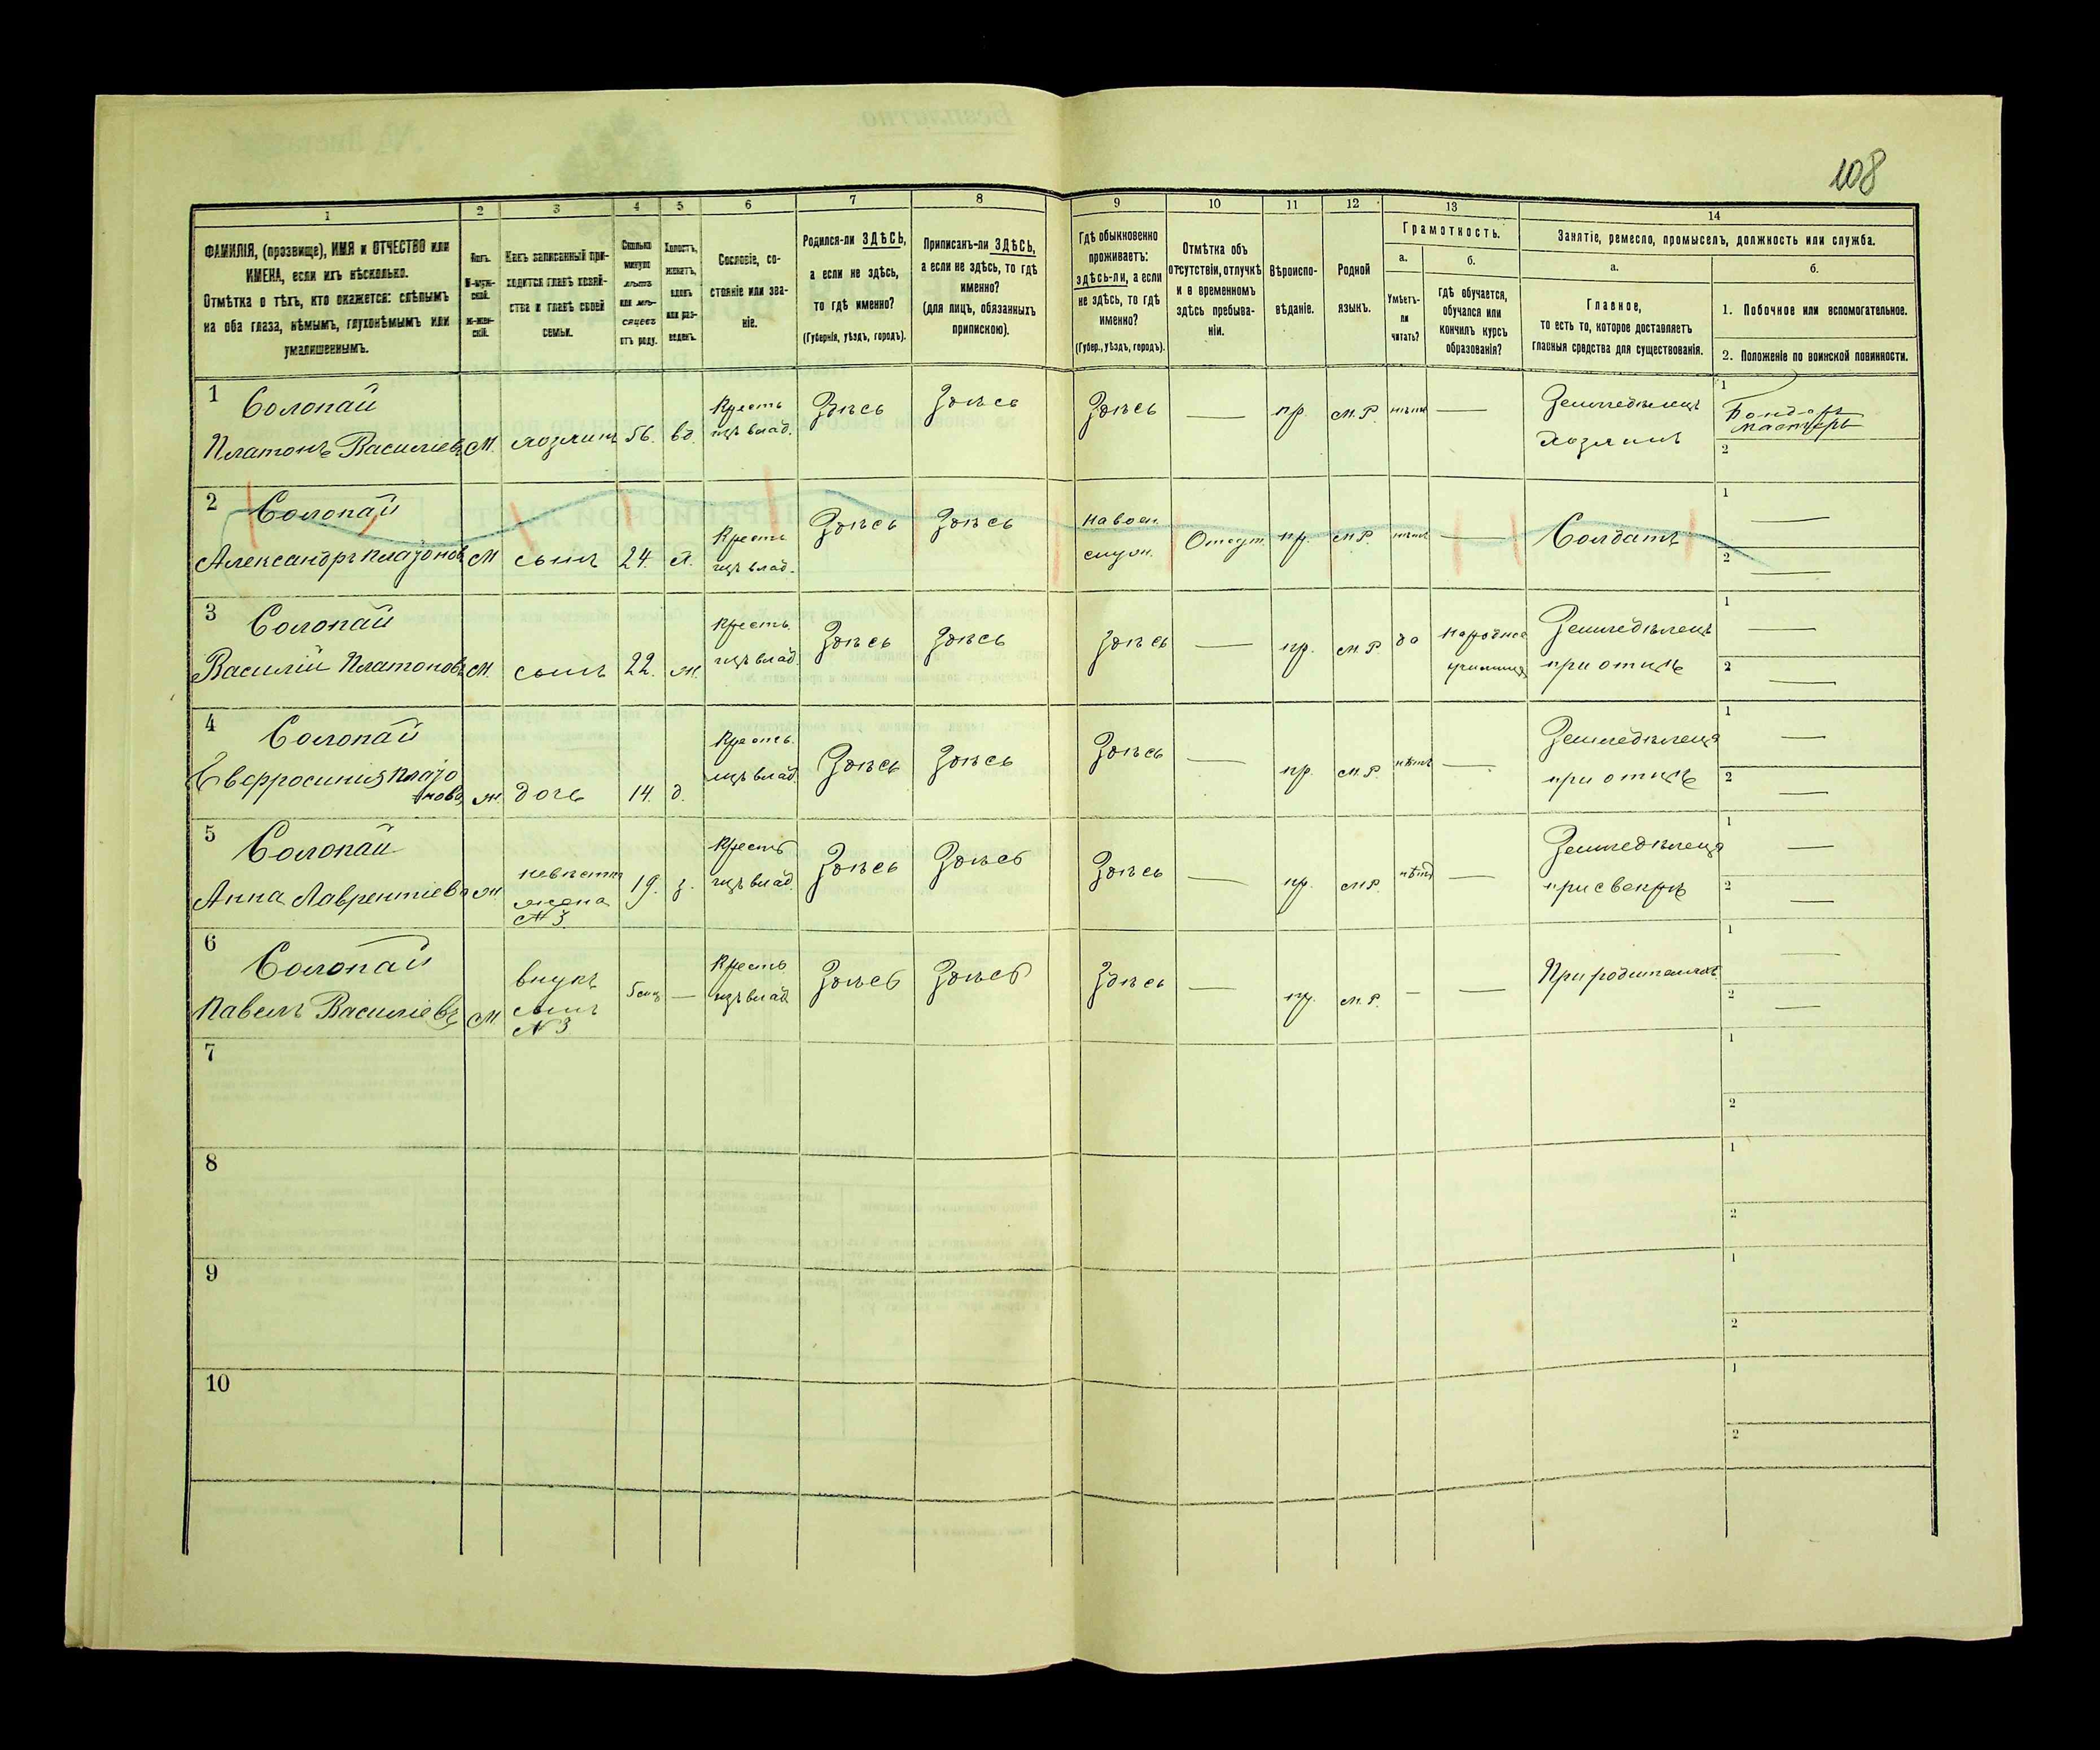 108
1 2 3 4 5 6 7 8 9 10 11 12 13 14
ФАМИЛІЯ, (прозвище), ИМЯ и ОТЧЕСТВО или
ИМЕНА, если ихъ нѣсколько.
Отмѣтка о тѣхъ, кто окажется: слѣпымъ
на оба глаза, нѣмымъ, глухонѣмымъ или
умалишеннымъ.
Полъ.
М-муж-
ской.
ж-жен-
скій.
Какъ записанный при-
ходится главѣ хозяй-
ства и главѣ своей
семьи.
Сколько
минуло
лѣтъ
или мѣ-
сяцевъ
отъ роду.
Холостъ,
женатъ,
вдовъ
или раз-
веденъ.
Сословіе, со-
стояніе или зва-
ніе.
Родился-ли ЗДѢСЬ,
а если не здѣсь,
то гдѣ именно?
(Губернія, уѣздъ, городъ).
Приписанъ-ли ЗДѢСЬ,
а если не здѣсь, то гдѣ
именно?
(для лицъ, обязанныхъ
припискою).
Гдѣ обыкновенно
проживаетъ:
здѣсь-ли, а если
не здѣсь, то гдѣ
именно?
(Губер., уѣздъ, городъ).
Отмѣтка объ
отсутствіи, отлучкѣ
и о временномъ
здѣсь пребыва-
ніи.
Вѣроиспо-
вѣданіе.
Родной
языкъ.
Грамотность.
а.
Умѣетъ-
ли
читать?
б.
Гдѣ обучается,
обучался или
кончилъ курсъ
образованія?
Занятіе, ремесло, промыселъ, должность или служба.
а.
Главное,
то есть то, которое доставляетъ
главныя средства для существованія.
б.
1. Побочное или вспомогательное.
2. Положеніе по воинской повинности.
1 Солопай
Платонъ Василіевъ М. хозяинъ 56. вд.
Кресть
изъ влад.
Здѣсь Здѣсь Здѣсь — пр. М.Р. нѣтъ —
Земледѣлецъ
хозяинъ
1 Бондарь
мастеръ
2
2 Солопай
Александръ Платоновъ М сынъ 24. х.
Кресть
изъ влад.
Здѣсь Здѣсь
На воен.
служ.
Отсут. пр. М.Р. нѣтъ — Солдатъ
1 —
2 —
3 Солопай
Василій Платоновъ М. сынъ 22. ж.
Кресть
изъ влад.
Здѣсь Здѣсь Здѣсь — пр. М.Р. да
Народное
училище
Земледѣлецъ
при отцѣ
1 —
2 —
4 Солопай
Евфросинія Плато
нова ж. дочь 14. д.
Кресть.
изъ влад
Здѣсь Здѣсь Здѣсь — пр. М.Р. нѣтъ —
Земледѣлецъ
при отцѣ
1 —
2 —
5 Солопай
Анна Лаврентіева ж.
невѣстка
жена
№ 3.
19. з.
Кресть
изъ влад.
Здѣсь Здѣсь Здѣсь — пр. М.Р. нѣтъ —
Земледѣлецъ
при свекрѣ
1 —
2 —
6 Солопай
Павелъ Василіевъ М
внукъ
сынъ
№ 3
—
Кресть
изъ влад
Здѣсь Здѣсь Здѣсь — пр. М.Р. — —
При родителяхъ
1 —
2 —
7
1
2
8
1
2
9
1
2
10
1
2